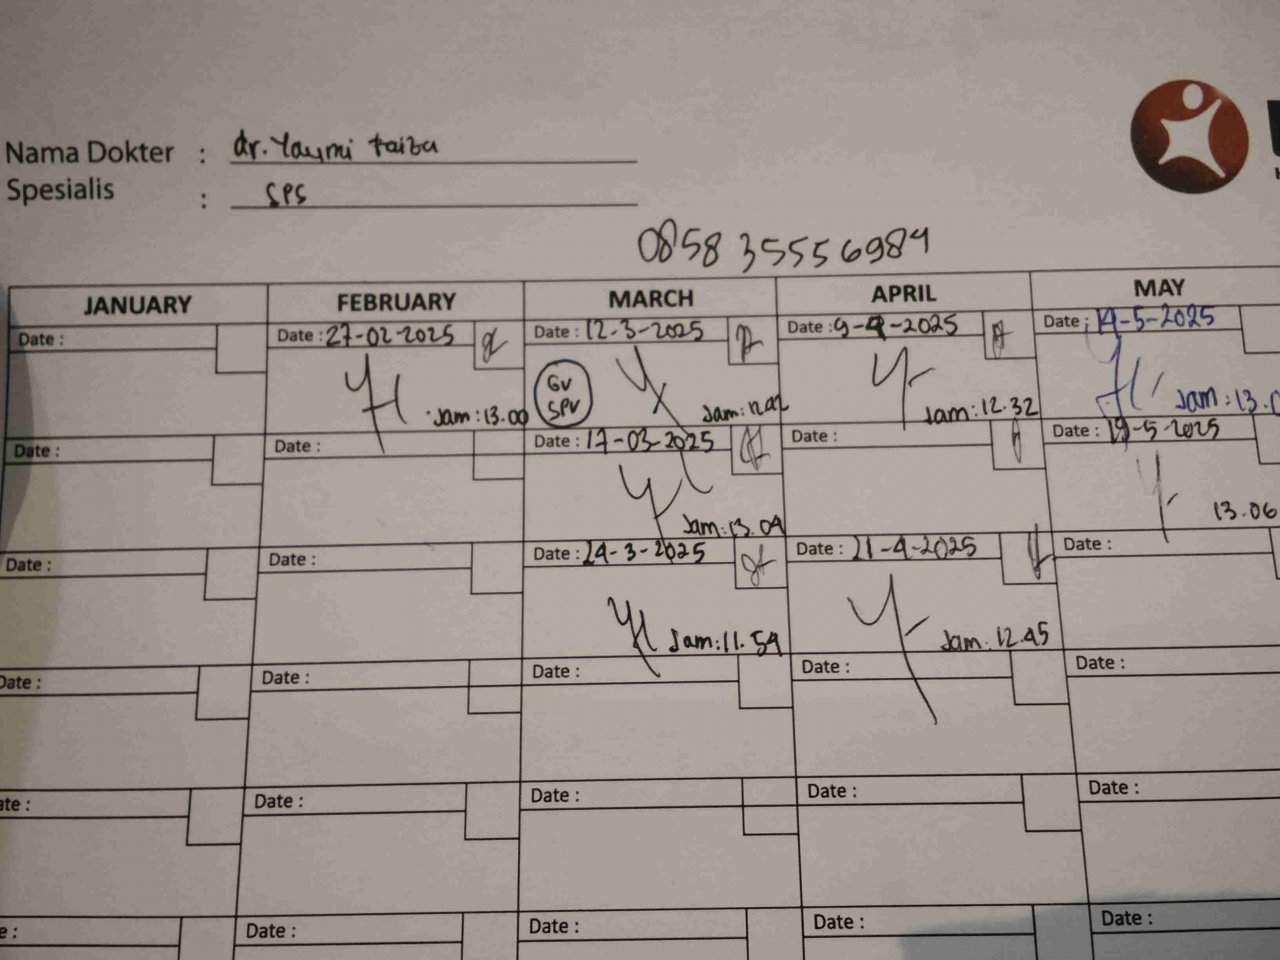 Nama Dokter : dr. Yaymi faiza
Spesialis : SPS
0858 35556984
JANUARY FEBRUARY MARCH APRIL MAY
Date : Date : 27-02-2025 Date : 12-3-2025 Date : 9-4-2025 Date : 14-5-2025
GV
SPV
Jam: 13.00 Jam: Jam: 12.32 Jam: 13.
Date : Date : Date : 17-03-2025 Date : Date : 19-5-2025
Jam: 13.04 13.06
Date : Date : Date : 24-3-2025 Date : 21-4-2025 Date :
Jam: 11.54 Jam: 12.45
Date : Date : Date : Date : Date :
ate : Date : Date : Date : Date :
e : Date : Date : Date : Date :